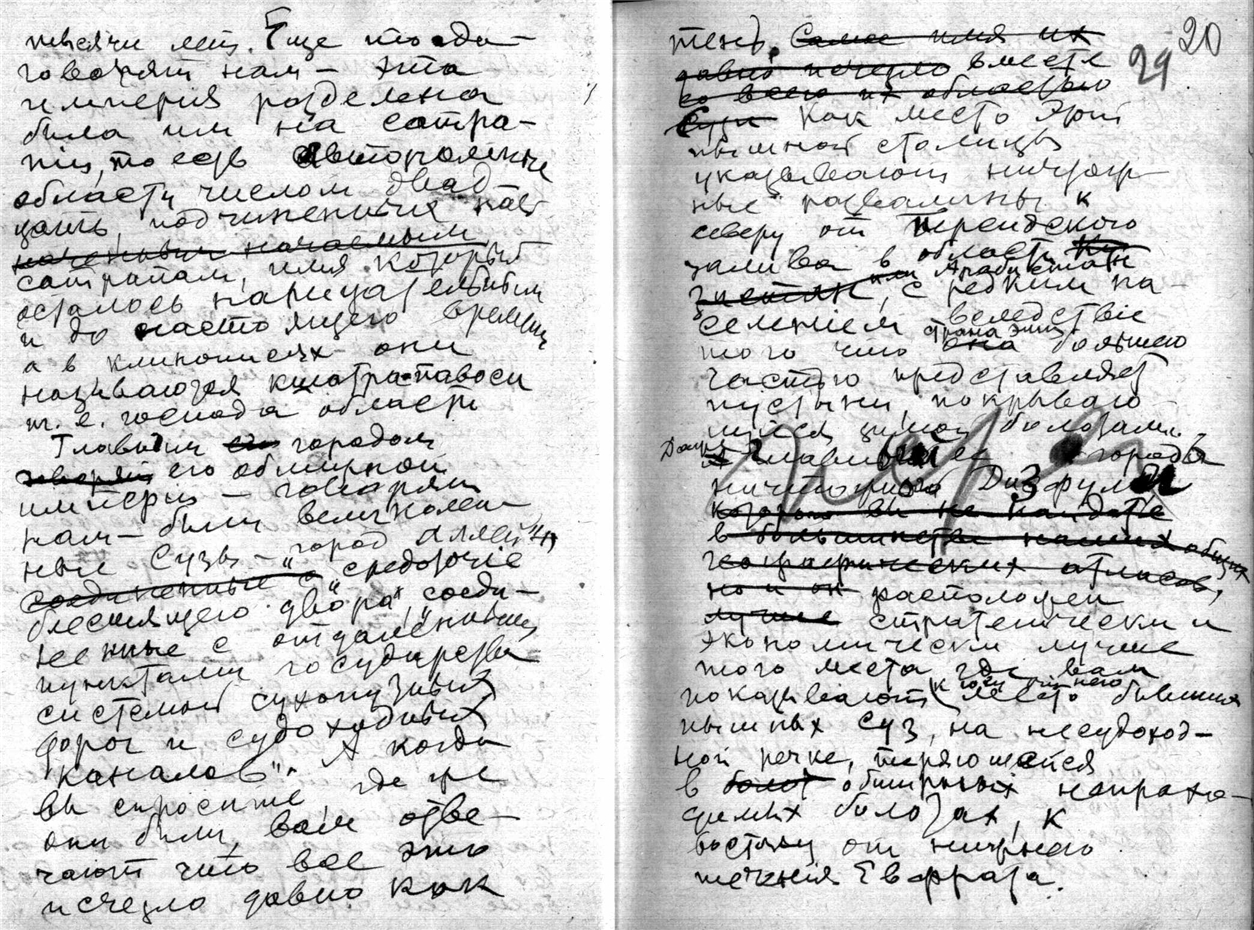 тысячи лет. Еще тогда—
говорят нам — эта
империя разделена
была им на сатра-
пии, то есть автономные
области числом двад
цать, подчиненных
сатрапам, имя которых
осталось нарицательным
и до настоящего времени
а в клинописях они
называются кшатра-павоси
т. е. господа области
Главным его городом
говорят его обширной
империи — говорят
нам — были великолеп-
ные Сузы — город Лилий,
соединенные с "средоточие
блестящего двора", "соеди-
ненные с отдаленными
пунктами государства
системой сухопутных
дорог и судоходных
каналов". А когда
вы спросите, где же
они были, вам отве-
чают что все это
исчезло давно как
20
29
тень. Самое имя их
давно исчезло вместе
со всею их областью
как место этой
пышной столицы
указывают ничтож-
ные развалины к
северу от Персидского
залива в области
или Арабистан
Хузистан, с редким на
селением вследствие
страна эта
того что она большею
частью представляет
пустыни, покрываю-
щиеся зимой болотами.
города
ничтожного Дизфула
которого вы не найдете
в большинстве наших общих
географических атласов,
но и он расположен
лучше стратегически и
экономически лучше
того места где вам
к югу от него
показывают место бывших
пышных Суз, на несудоход-
ной речке, теряющейся
в болот обширных непрохо-
димых болотах, к
востоку от нижнего
течения Евфрата.